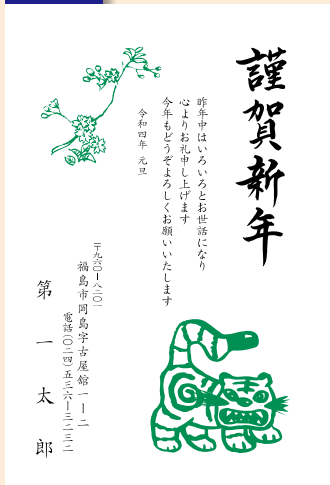 謹賀新年
昨年中はいろいろとお世話になり
心よりお礼申し上げます
今年もどうぞよろしくお願いいたします
令和四年 元旦
〒九六〇ー八二〇一
福島市岡島字古屋舘一ー二
電話(〇二四)五三六ー三二三二
第一太郎